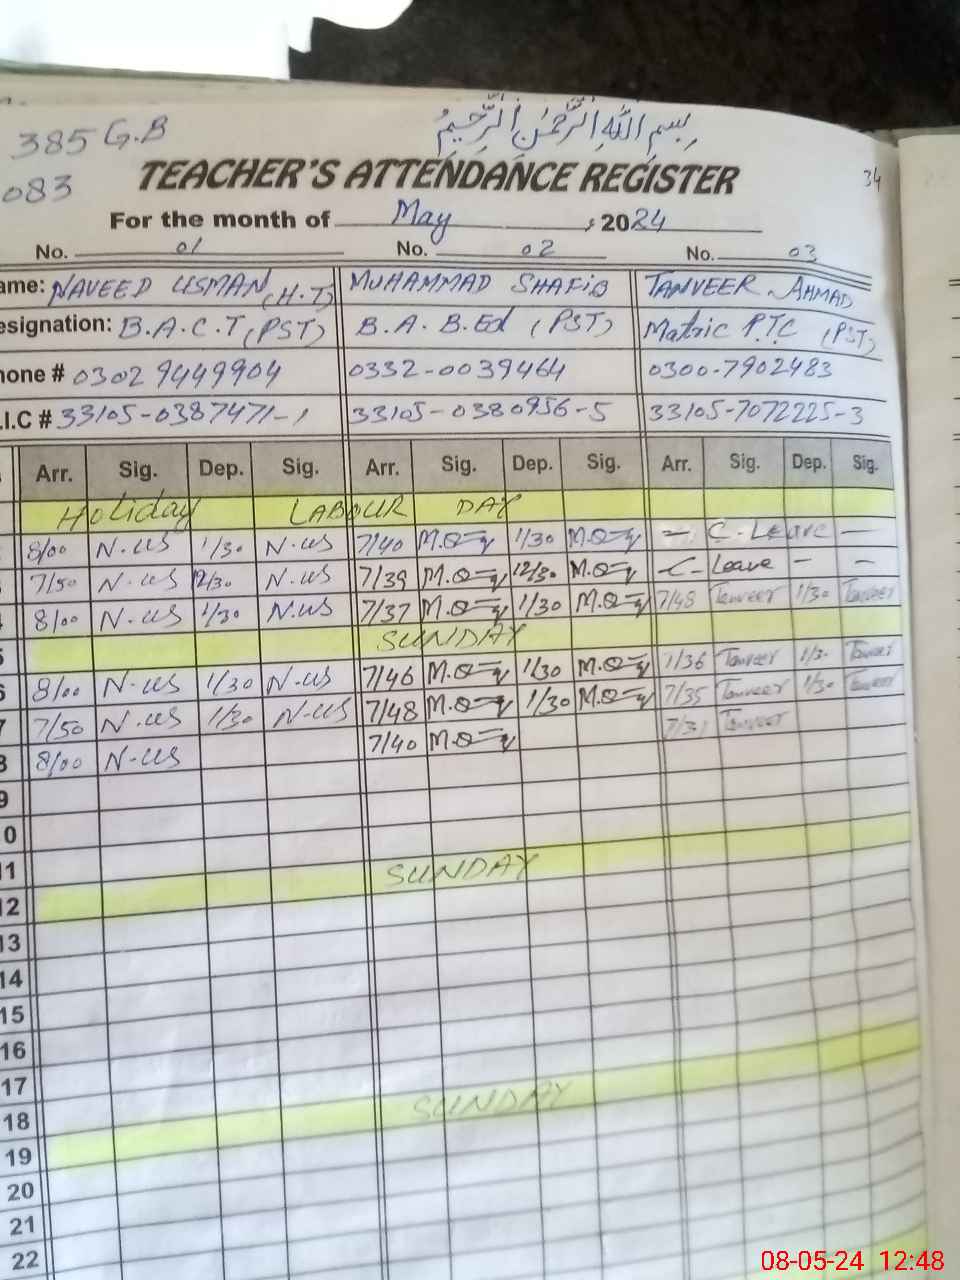 385 G.B
بِسْمِ اللهِ الرَّحْمٰنِ الرَّحِيْمِ
083
TEACHER'S ATTENDANCE REGISTER
34
For the month of May, 2024
No. 01 No. 02 No. 03
ame: NAVEED USMAN (H.T) MUHAMMAD SHAFIQ TANVEER AHMAD
esignation: B.A. C.T (PST) B.A. B.Ed (PST) Matric P.T.C (PST)
hone # 0302 9449904 0332-0039464 0300-7902483
.I.C # 33105-0387471-1 33105-0380956-5 33105-7072225-3
Arr. Sig. Dep. Sig. Arr. Sig. Dep. Sig. Arr. Sig. Dep. Sig.
Holiday LABOUR DAY
8/00 N.US 1/30 N.US 7/40 1/30 — C.Leave —
7/50 N.US 12/30 N.US 7/39 12/30 — C-Leave — —
8/00 N.US 1/30 N.US 7/37 1/30 7/48 Tanveer 1/30 Tanveer
5 SUNDAY
6 8/00 N.US 1/30 N.US 7/46 1/30 7/36 Tanveer 1/30 Tanveer
7 7/50 N.US 1/30 N.US 7/48 1/30 7/35 Tanveer 1/30 Tanveer
8 8/00 N.US 7/40 7/31 Tanveer
9
0
11
12 SUNDAY
13
14
15
16
17
18
19 SUNDAY
20
21
22
08-05-24 12:48